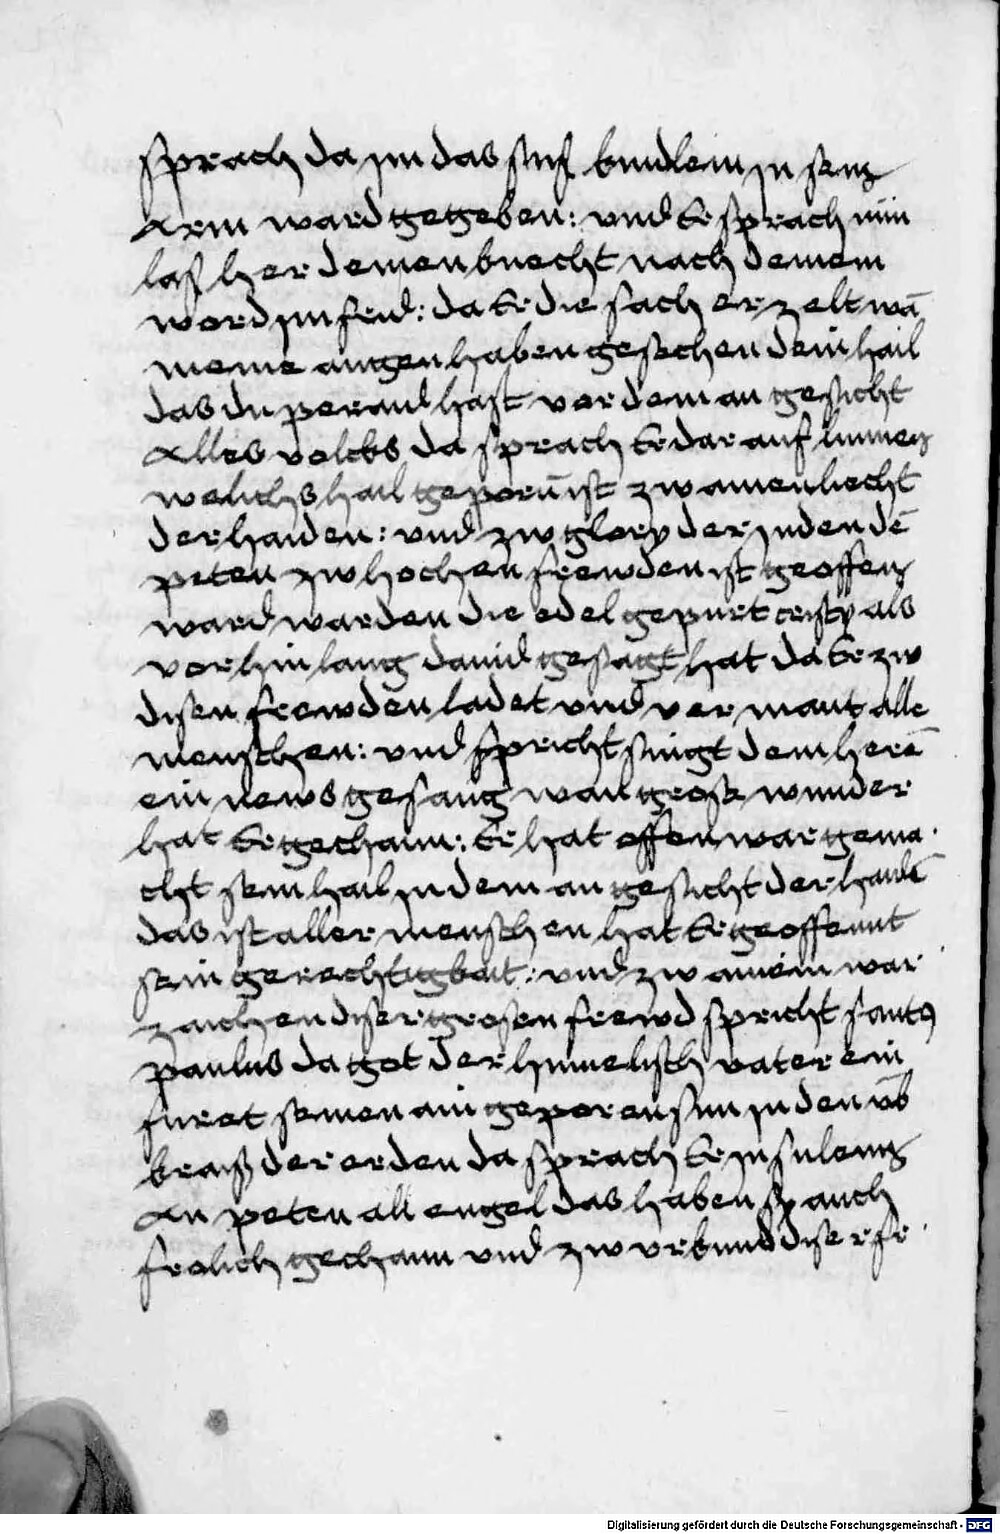 sprach da im das süsß kindlein in sein
Arm ward gegeben: vnd Er sprach nün
laß her deinen knecht nach deinem
word im frid: da Er die sach erzelt wā
meine augen haben gesechen dein hail
das du peraid hast vor dem angesicht
Alles volcks da sprach Er darauf
welichs hail geporn̄ ist zw ainen liecht
der haiden: vnd zw glory der juden dē
peten zw hochen frewden ist geoffen
ward warden die edel gepurt cristÿ als
vorhin lang dauid gesagt hat da Er zw
disen frewden ladet vnd vermant alle
menschen: vnd spricht singt dem herē
ein news gesang wan grose wunder
hat Er gethann: Er hat offenwar gema
cht sein hail in dem angesicht der haidē
das ist aller menschen hat Er geoffennt
sein gerechtigkait: vnd zw ainem war
zaichen diser grosen frewd spricht santꝰ
paulus da got der himelisch vater ein
furet seinen aingeporen sun in den vmb
kraiß der erden da sprach Er in sulenn
An peten all engel das haben sy auch
frolich gethann vnd zw vrkund diser fr
Digitalisierung gefördert durch die Deutsche Forschungsgemeinschaft - DFG